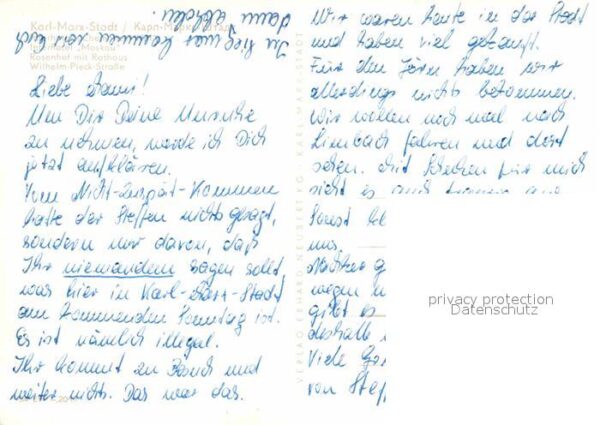 Karl-Marx-Stadt
Wilhelm-Pieck-Straße
Liebe
Um Dir Deine Unruhe
zu nehmen, werde ich Dich
jetzt aufklären.
Vom Nicht-Zuspät-Kommen
hatte der Steffen nichts gesagt,
sondern nur davon, daß
Ihr niemandem sagen sollt,
was hier in Karl-Marx-Stadt
am kommenden Sonntag ist.
Es ist nämlich illegal.
Ihr kommt zu Besuch und
weiter nichts. Das war das.
Wir waren heute in der Stadt
und haben viel gekauft.
Für den Jörn haben wir
allerdings nichts bekommen.
Wir wollen noch mal nach
Limbach fahren und dort
sehen. Mit Schuhen für mich
sieht es auch
Sonst
uns.
wegen
gibt es
deshalb
Viele
von Stef
VERLAG ERHARD NEUBERT KG · KARL-MARX-STADT
privacy protection
Datenschutz